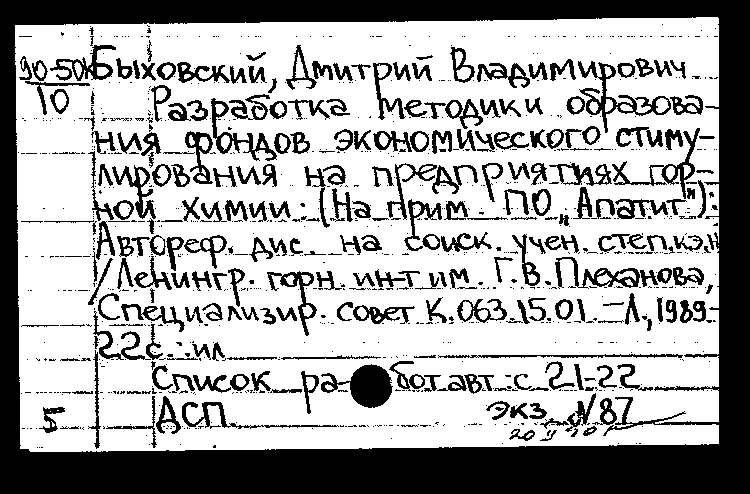 90-50к Быховский, Дмитрий Владимирович
10 Разработка методики образова-
ния фондов экономического стиму-
лирования на предприятиях гор-
ной химии: (На прим. ПО „Апатит"):
Автореф. дис. на соиск. учен. степ. к.э.н
/Ленингр. горн. ин-т им. Г.В. Плеханова,
Специализир. совет К.063.15.01. - Л., 1989.-
22 с.: ил
Список работ авт.: с 21-22
5 ДСП. экз. №87